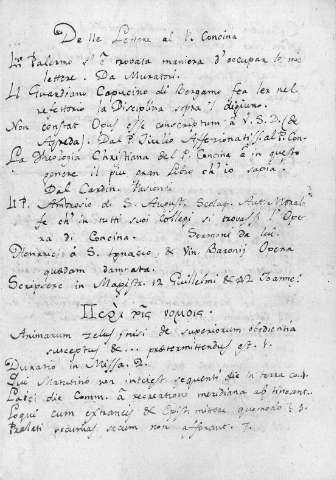 Delle Lettere al P. Concina
In Palermo s'è trovata maniera d'occupar le mie
lettere. Da Muratori.
Il Guardiano Capucino di Bergamo fea legger nel
refettorio la Disciplina sopra il digiuno.
Non constat Opus esse conscriptum à V. S. D. (de
Agreda). Dal P. Giulio
La Theologia Christiana del P. Concina è in questo
genere il più gran Libro ch'io sacia.
Dal Cardin.
Il P. Ambrosio di S. Agost. Scolop. Aut. Moral
fe ch'in tutti suoi Collegi si trovasse l'Ope
ra di Concina. Sermoni da lui.
à S. Ignacio, & Vin. Baronij Opera
quædam damnata.
Scripsere in Magistr. 12 Guillelmi & 42 Joannes.
Περὶ τῆς νομοις.
Animarum zelus nisi de superiorum obedientia
susceptus &... prætermittendus est. 1.
Duratio in Missa. 2.
Qui Matutino non interest sequenti die in terra com.
die Comm. à recreatione meridiana abstineant.
Loqui cum extraneis & Epist. mittere quomodo 3.
Prælati secum non afferant. 7.